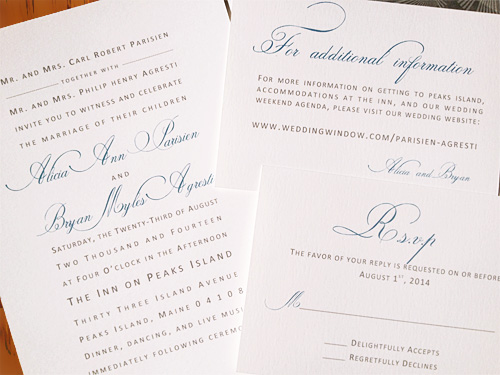 Mr. and Mrs. Carl Robert Parisien
together with
Mr. and Mrs. Philip Henry Agresti
invite you to witness and celebrate
the marriage of their children
Alicia Ann Parisien
and
Bryan Myles Agresti
Saturday, the Twenty-Third of August
Two Thousand and Fourteen
at Four O'clock in the Afternoon
The Inn on Peaks Island
Thirty Three Island Avenue
Peaks Island, Maine 04108
Dinner, dancing, and live music
immediately following ceremony
For additional information
For more information on getting to Peaks Island,
accommodations at the inn, and our wedding
weekend agenda, please visit our wedding website:
www.weddingwindow.com/parisien-agresti
Alicia and Bryan
R.s.v.p
The favor of your reply is requested on or before
August 1st, 2014
M
Delightfully Accepts
Regretfully Declines